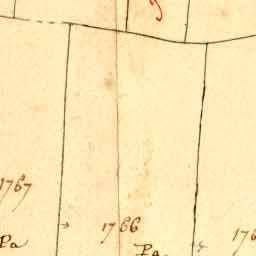 1767
1766
176
Pa
Pa